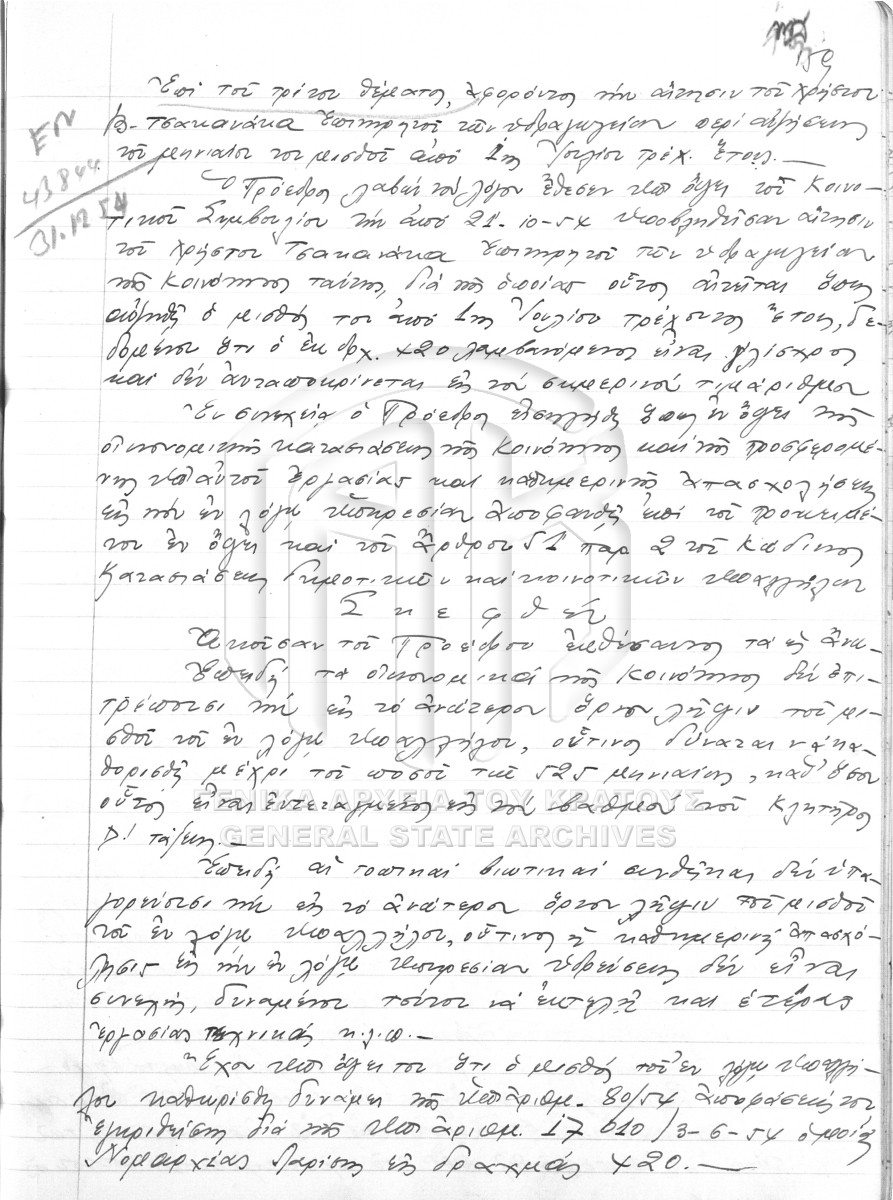 159
ΕΝ
43844
31.12.54
Ἐπί τοῦ τρίτου θέματος, ἀφορῶντος τήν αἴτησιν τοῦ Χρήστου
Β. Τσακανάκα Ἐπιστάτου τῶν ὑδραγωγείων περί αὐξήσεως
τοῦ μηνιαίου του μισθοῦ ἀπό 1ης Ἰουλίου τρέχ. ἔτους.—
Ὁ Πρόεδρος λαβών τόν λόγον ἔθεσεν ὑπ' ὄψει τοῦ Κοινο-
τικοῦ Συμβουλίου τήν ἀπό 21-10-54 ὑποβληθεῖσαν αἴτησιν
τοῦ Χρήστου Τσακανάκα τῶν ὑδραγωγείων
τῆς Κοινότητος ταύτης, διά τῆς ὁποίας οὗτος αἰτεῖται ὅπως
αὐξηθῇ ὁ μισθός του ἀπό 1ης Ἰουλίου τρέχοντος ἔτους, δε-
δομένου ὅτι ὁ ἐκ δρχ. 420 λαμβανόμενος εἶναι γλίσχρος
καί δέν ἀνταποκρίνεται εἰς τόν σημερινόν τιμάριθμον
Ἐν συνεχείᾳ ὁ Πρόεδρος εἰσηγήθη ὅπως ἐν ὄψει τῆς
οἰκονομικῆς καταστάσεως τῆς Κοινότητος καί τῆς προσφερομέ-
νης ὑπ' αὐτοῦ ἐργασίας καί καθημερινῆς ἀπασχολήσεως
εἰς τήν ἐν λόγῳ ὑπηρεσίαν ἀποφανθῇ ἐπί τοῦ προκειμέ-
νου ἐν ὄψει καί τοῦ ἄρθρου 51 παρ 2 τοῦ Κώδικος
Καταστάσεως δημοτικῶν καί κοινοτικῶν ὑπαλλήλων
Σκεφθέν
Ἀκοῦσαν τοῦ Προέδρου ἐκθέσαντος τά ὡς ἄνω
Ἐπειδή τά οἰκονομικά τῆς Κοινότητος δέν ἐπι-
τρέπουσι τήν εἰς τό ἀνώτερον ὅριον λῆψιν τοῦ μι-
σθοῦ τοῦ ἐν λόγῳ ὑπαλλήλου, οὗτινος δύναται νά κα-
θορισθῇ μέχρι τοῦ ποσοῦ τῶν 525 μηνιαίως, καθ' ὅσον
οὗτος εἶναι ἐντεταγμένος εἰς τόν βαθμόν τοῦ Κλητῆρος
τάξεως.—
Ἐπειδή αἱ τοπικαί βιωτικαί συνθῆκαι δέν ὑπα-
γορεύουσι τήν εἰς τό ἀνώτερον ὅριον λῆψιν τοῦ μισθοῦ
τοῦ ἐν λόγῳ ὑπαλλήλου, οὗτινος ἡ καθημερινή ἀπασχό-
λησις εἰς τήν ἐν λόγῳ ὑπηρεσίαν ὑδρεύσεως δέν εἶναι
συνεχής, δυναμένου τούτου νά ἐκτελῇ καί ἑτέρας
ἐργασίας τεχνικάς κ.λ.π.—
Ἔχον ὑπ' ὄψει του ὅτι ὁ μισθός τοῦ ἐν λόγῳ ὑπαλλή-
λου καθωρίσθη δυνάμει τῆς ὑπ' ἀριθμ. 80/54 ἀποφάσεώς του
ἐγκριθείσης διά τῆς ὑπ' ἀριθμ. 17010/3-6-54 ὁμοίας
Νομαρχίας Λαρίσης εἰς δραχμάς 420.—
ΓΕΝΙΚΑ ΑΡΧΕΙΑ ΤΟΥ ΚΡΑΤΟΥΣ
GENERAL STATE ARCHIVES